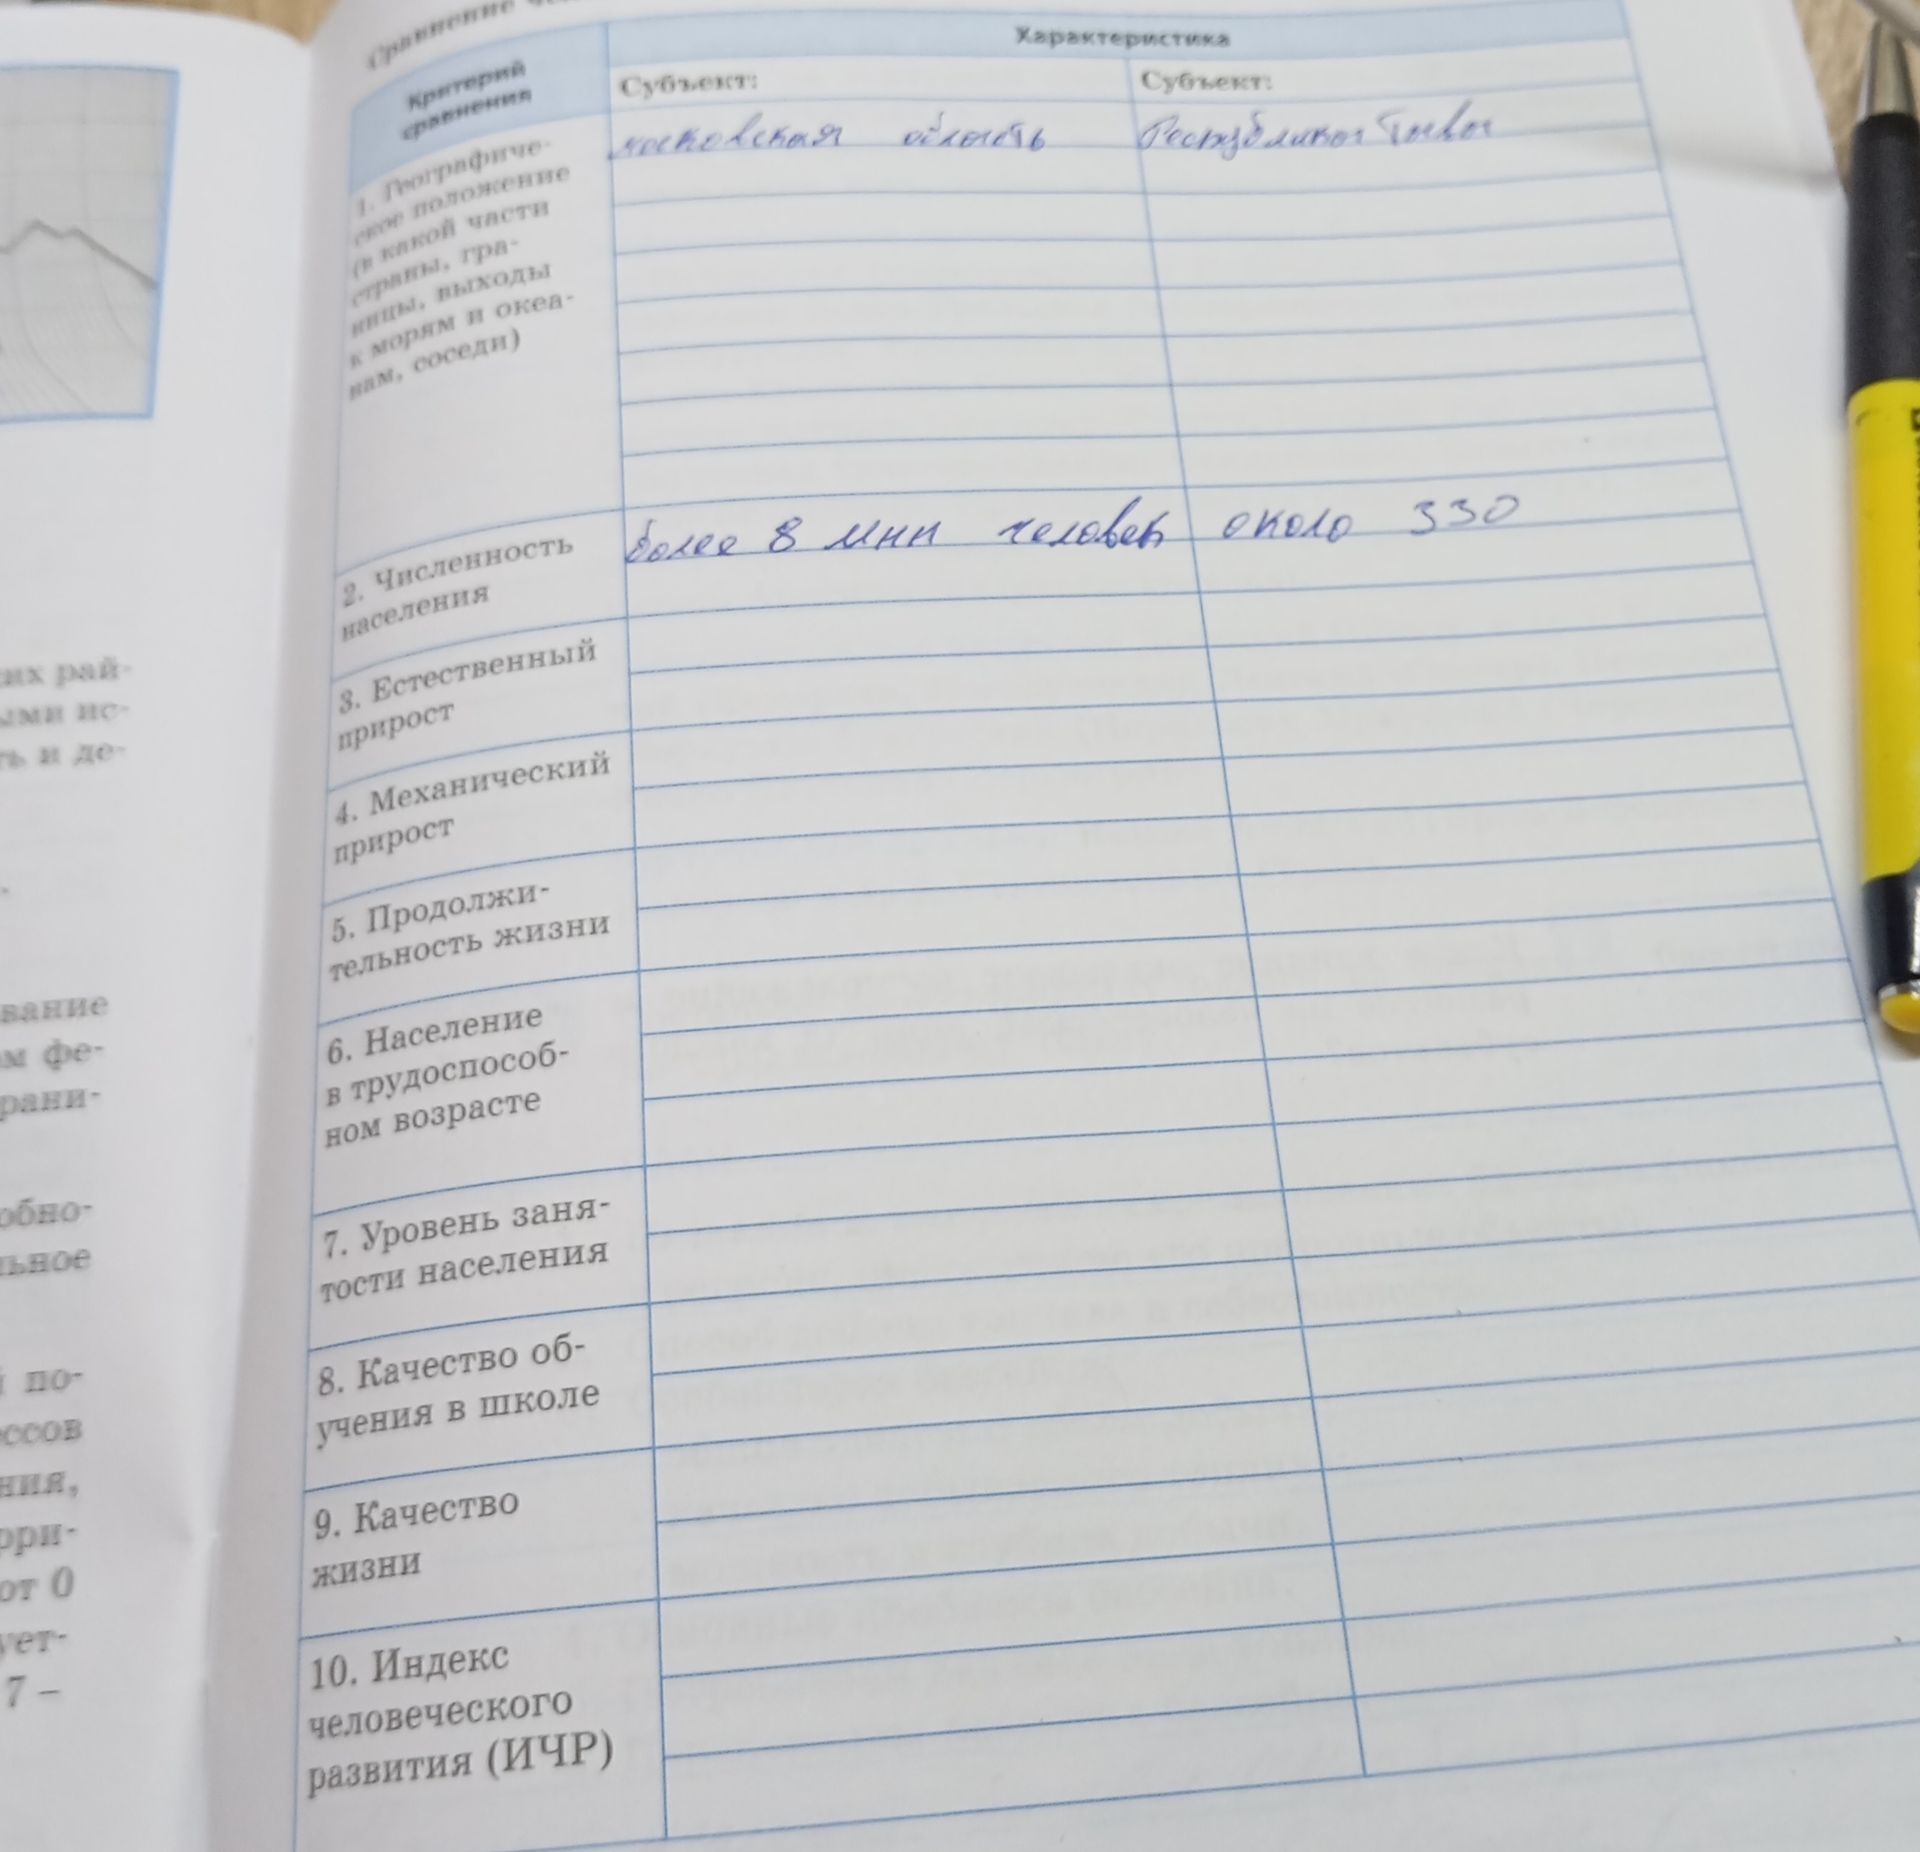 Сравнение
Критерий
сравнения
Характеристика
Субъект:
Субъект:
московская область
Республика Тыва
1. Географиче-
ское положение
(в какой части
страны, гра-
ницы, выходы
к морям и океа-
нам, соседи)
2. Численность
населения
более 8 млн человек
около 330
3. Естественный
прирост
4. Механический
прирост
5. Продолжи-
тельность жизни
6. Население
в трудоспособ-
ном возрасте
7. Уровень заня-
тости населения
8. Качество об-
учения в школе
9. Качество
жизни
10. Индекс
человеческого
развития (ИЧР)
их рай-
ыми ис-
ть и де-
вание
ом фе-
рани-
обно-
льное
й по-
ессов
ния,
рри-
от 0
ует-
7 –